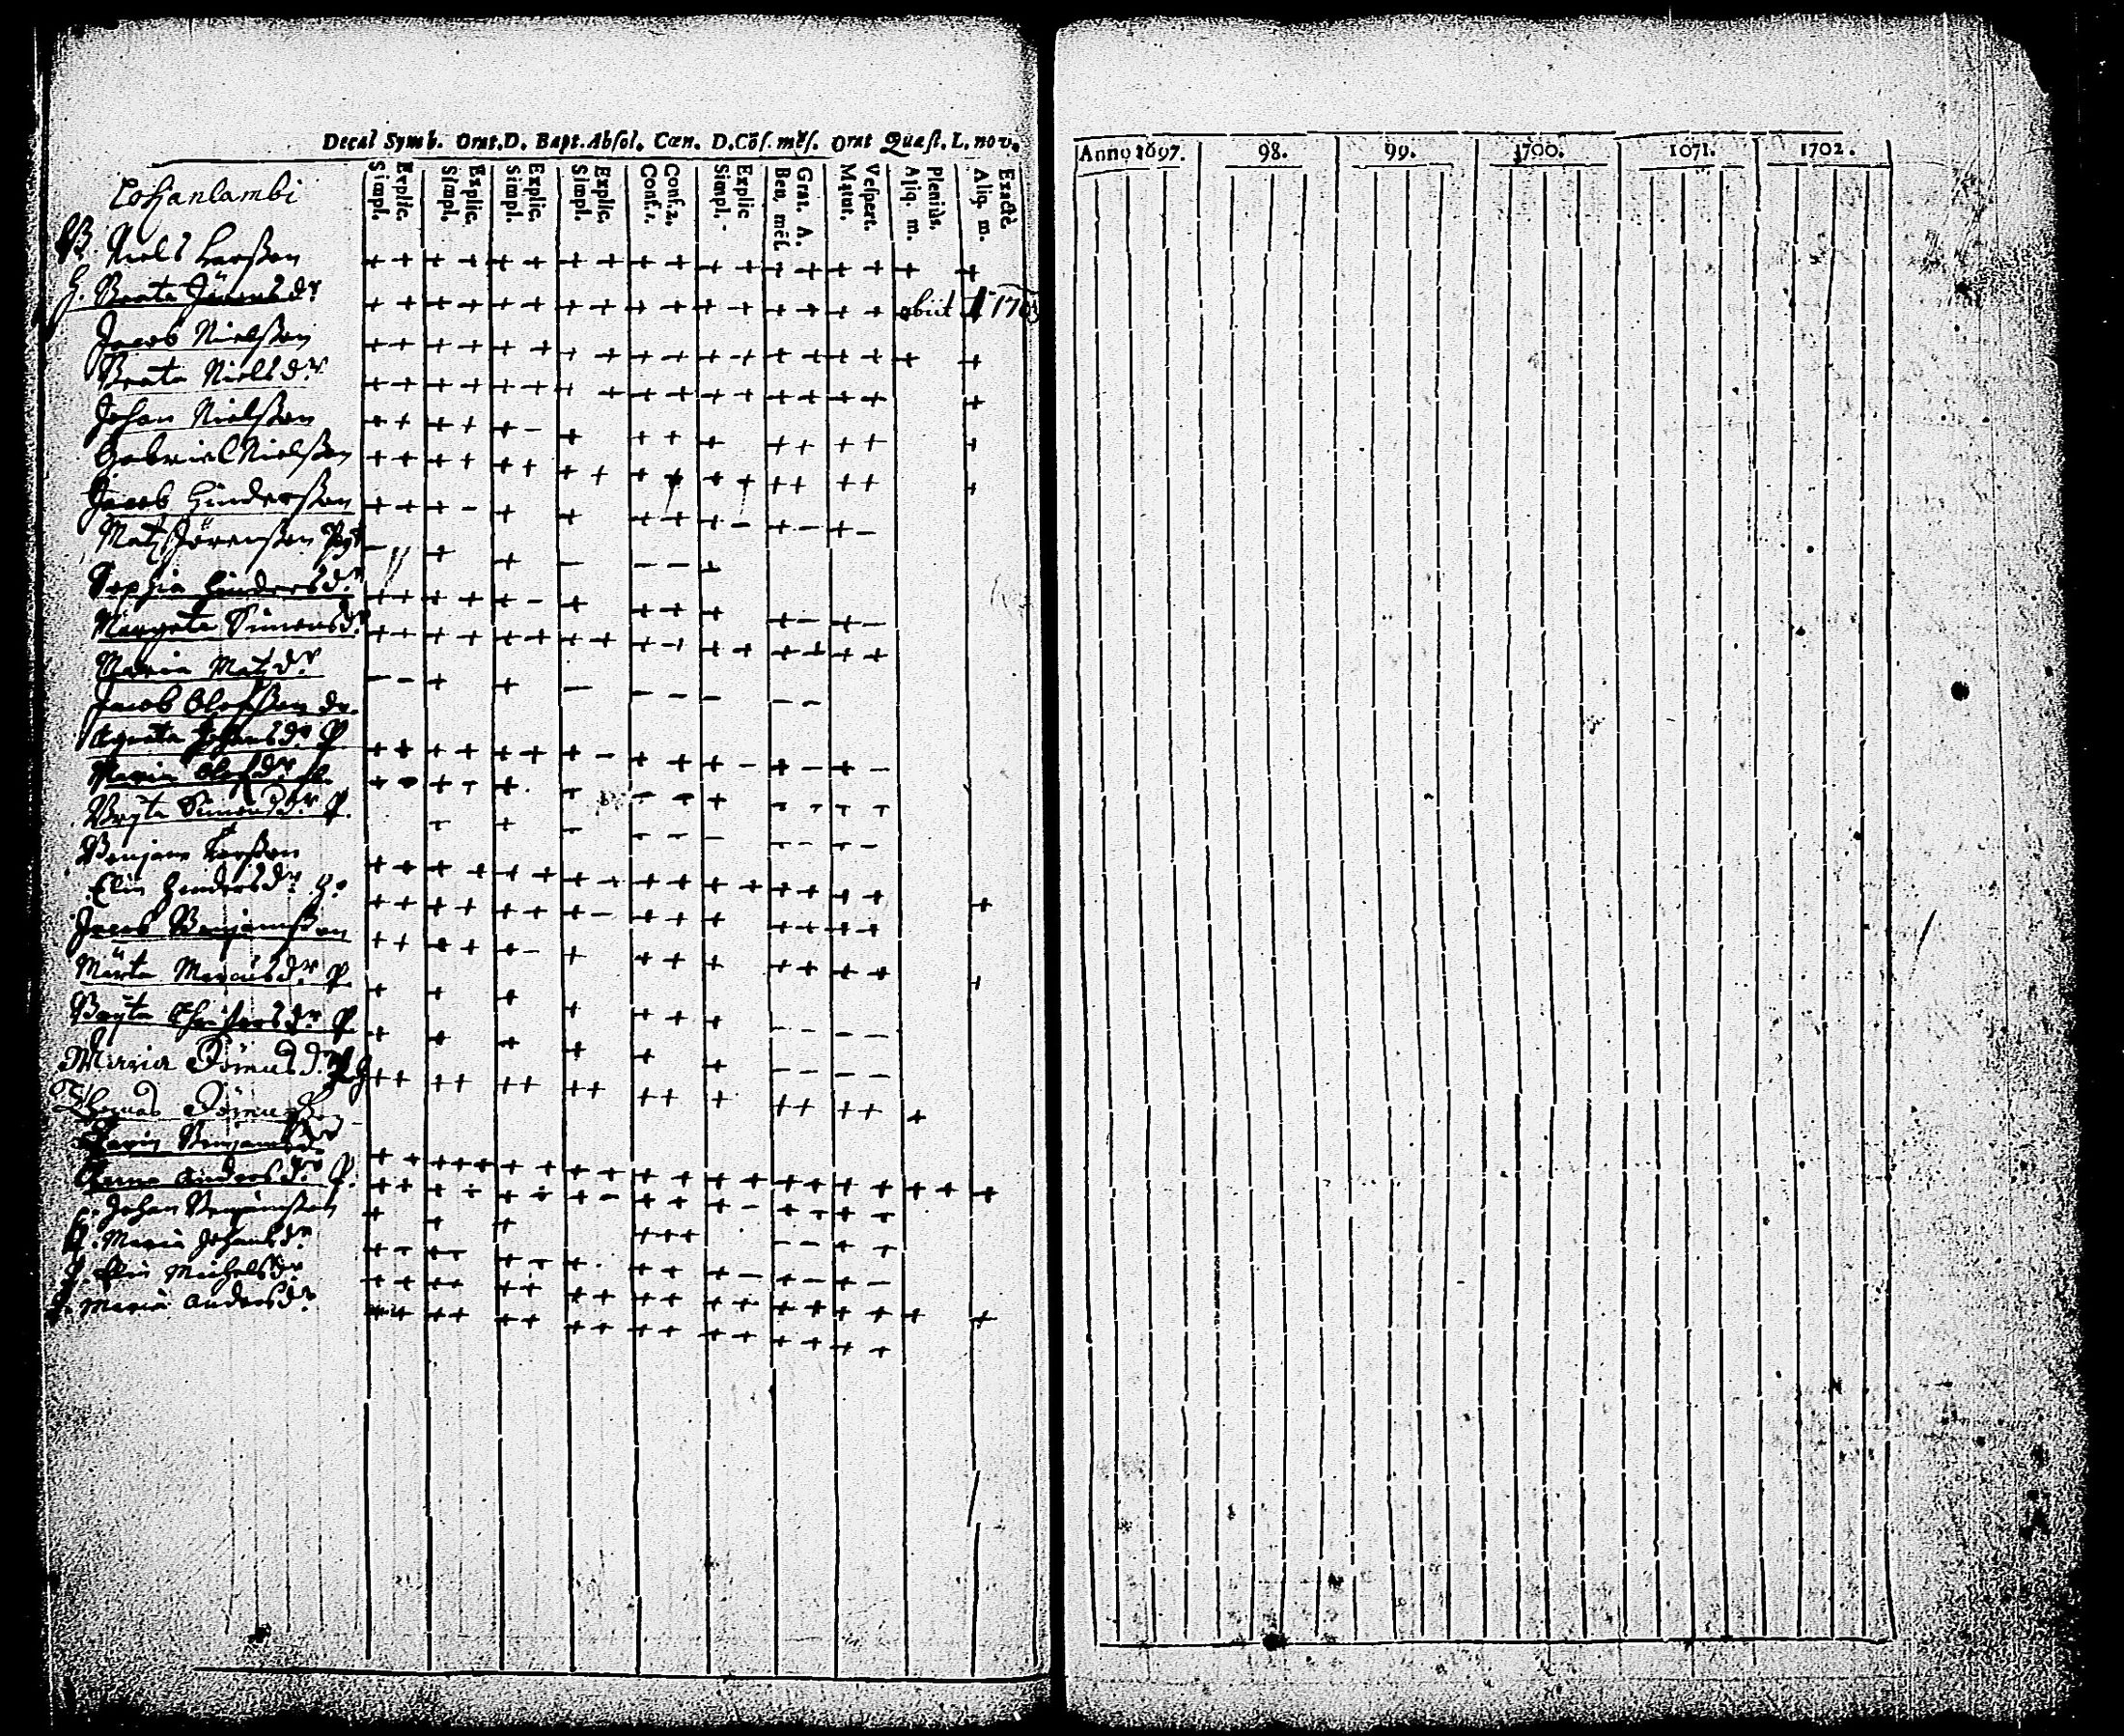 Decal Symb. Orat. D. Bapt. Absol. Cœn. D. Cõs. mēs. Orat Quæst. L. nov.
Simpl. Explic. Simpl. Explic. Simpl. Explic. Simpl. Explic. Conf. 1. Conf. 2. Simpl. Explic Ben. mēs. Grat. A. Matut. Vespert. Aliq. m. Pleniùs. Aliq. m. Exactè.
Lohanlambi
B. Niels Larsson
H. Beata Jörensdr
obiit A 1703
Jacob Nielsson
Beata Nielsdr
Johan Nielsson
Gabriel Nielsson
Jacob Hindersson
Matz Jörensson
Sophia Hindersdr
Margeta Simonsdr
Maria Matzdr
Jacob Olofsson
Agneta Johansdr P
Maria Olofsdr
Bryta Simonsdr P.
Benjam Larsson
Elin Hindersdr H.
Jacob Benjamsson
Märta Marcusdr P.
Bryta Christersdr P
Maria Tömasd.
Thomas Tömasson
Karin Benjamsdr
Anna Andersdr P.
Johan Benjamsson
H. Maria Johansdr
Elin Michelsdr
Maria Andersdr
Anno 1697. 98. 99. 1700. 1071. 1702.